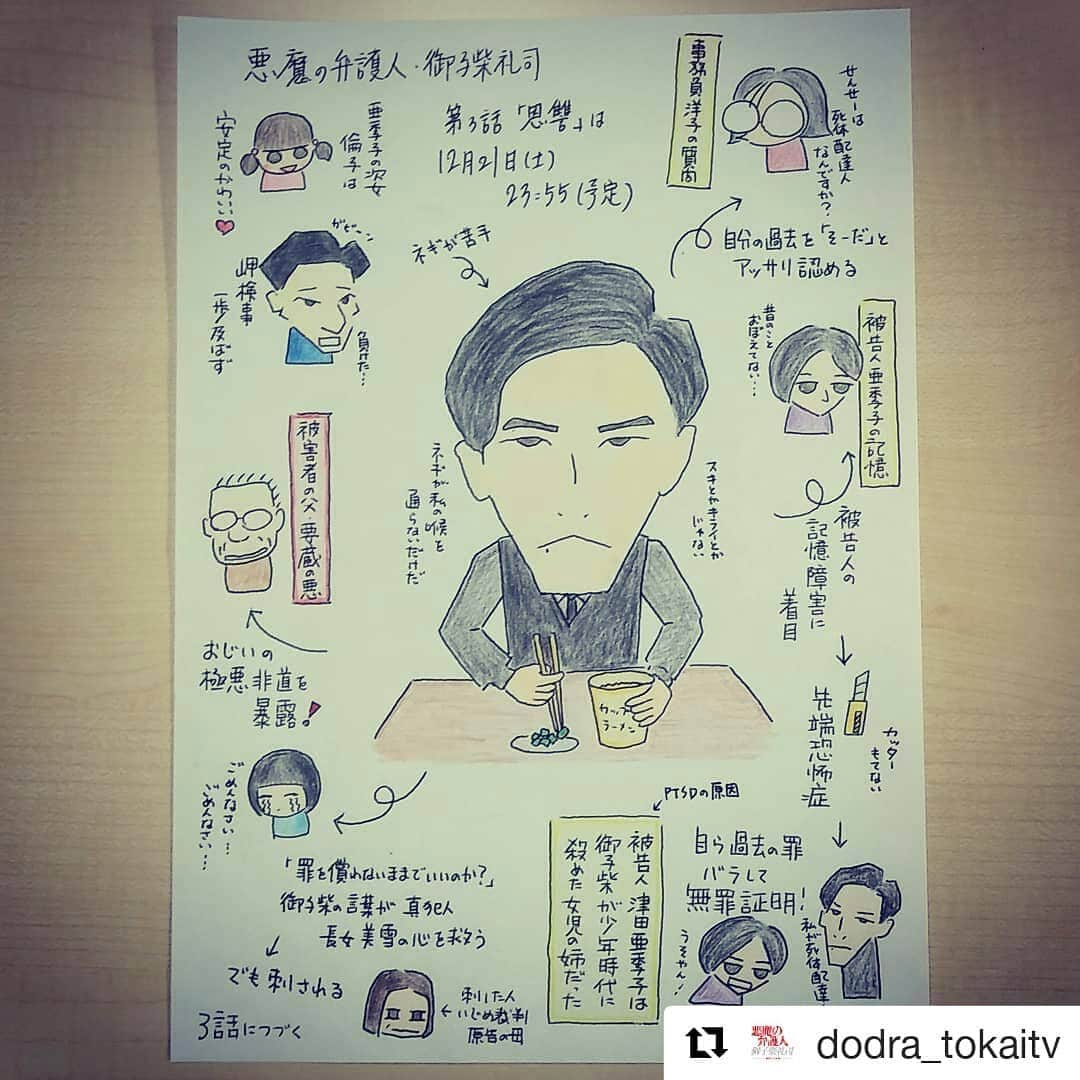 悪魔の弁護人・御子柴礼司
第3話「恩讐」は
12月21日(土)
23:55(予定)
亜季子の次女
倫子は
安定のかわいい
ガビーン
岬検事
一歩及ばず
負けた…
被害者の父・要蔵の悪
おじいの
極悪非道を
暴露!
ごめんなさい…
ごめんなさい…
「罪を償わないままでいいのか?」
御子柴の言葉が真犯人
長女美雪の心を救う
でも刺される
刺した人
いじめ裁判
原告の母
3話につづく
ネギが苦手
ネギが私の喉を
通らないだけだ
スキとかキライとか
じゃない
カップ
ラーメン
事務員洋子の質問
せんせーは
死体配達人
なんですか?
自分の過去を「そーだ」と
アッサリ認める
被告人亜季子の記憶
昔のこと
おぼえてない…
被告人の
記憶障害に
着目
先端恐怖症
カッター
もてない
自ら過去の罪
バラして
無罪証明!
私が死体配達
うそやん!
PTSDの原因
被告人津田亜季子は
御子柴が少年時代に
殺めた女児の姉だった
悪魔の
弁護人
御子柴礼司
dodra_tokaitv